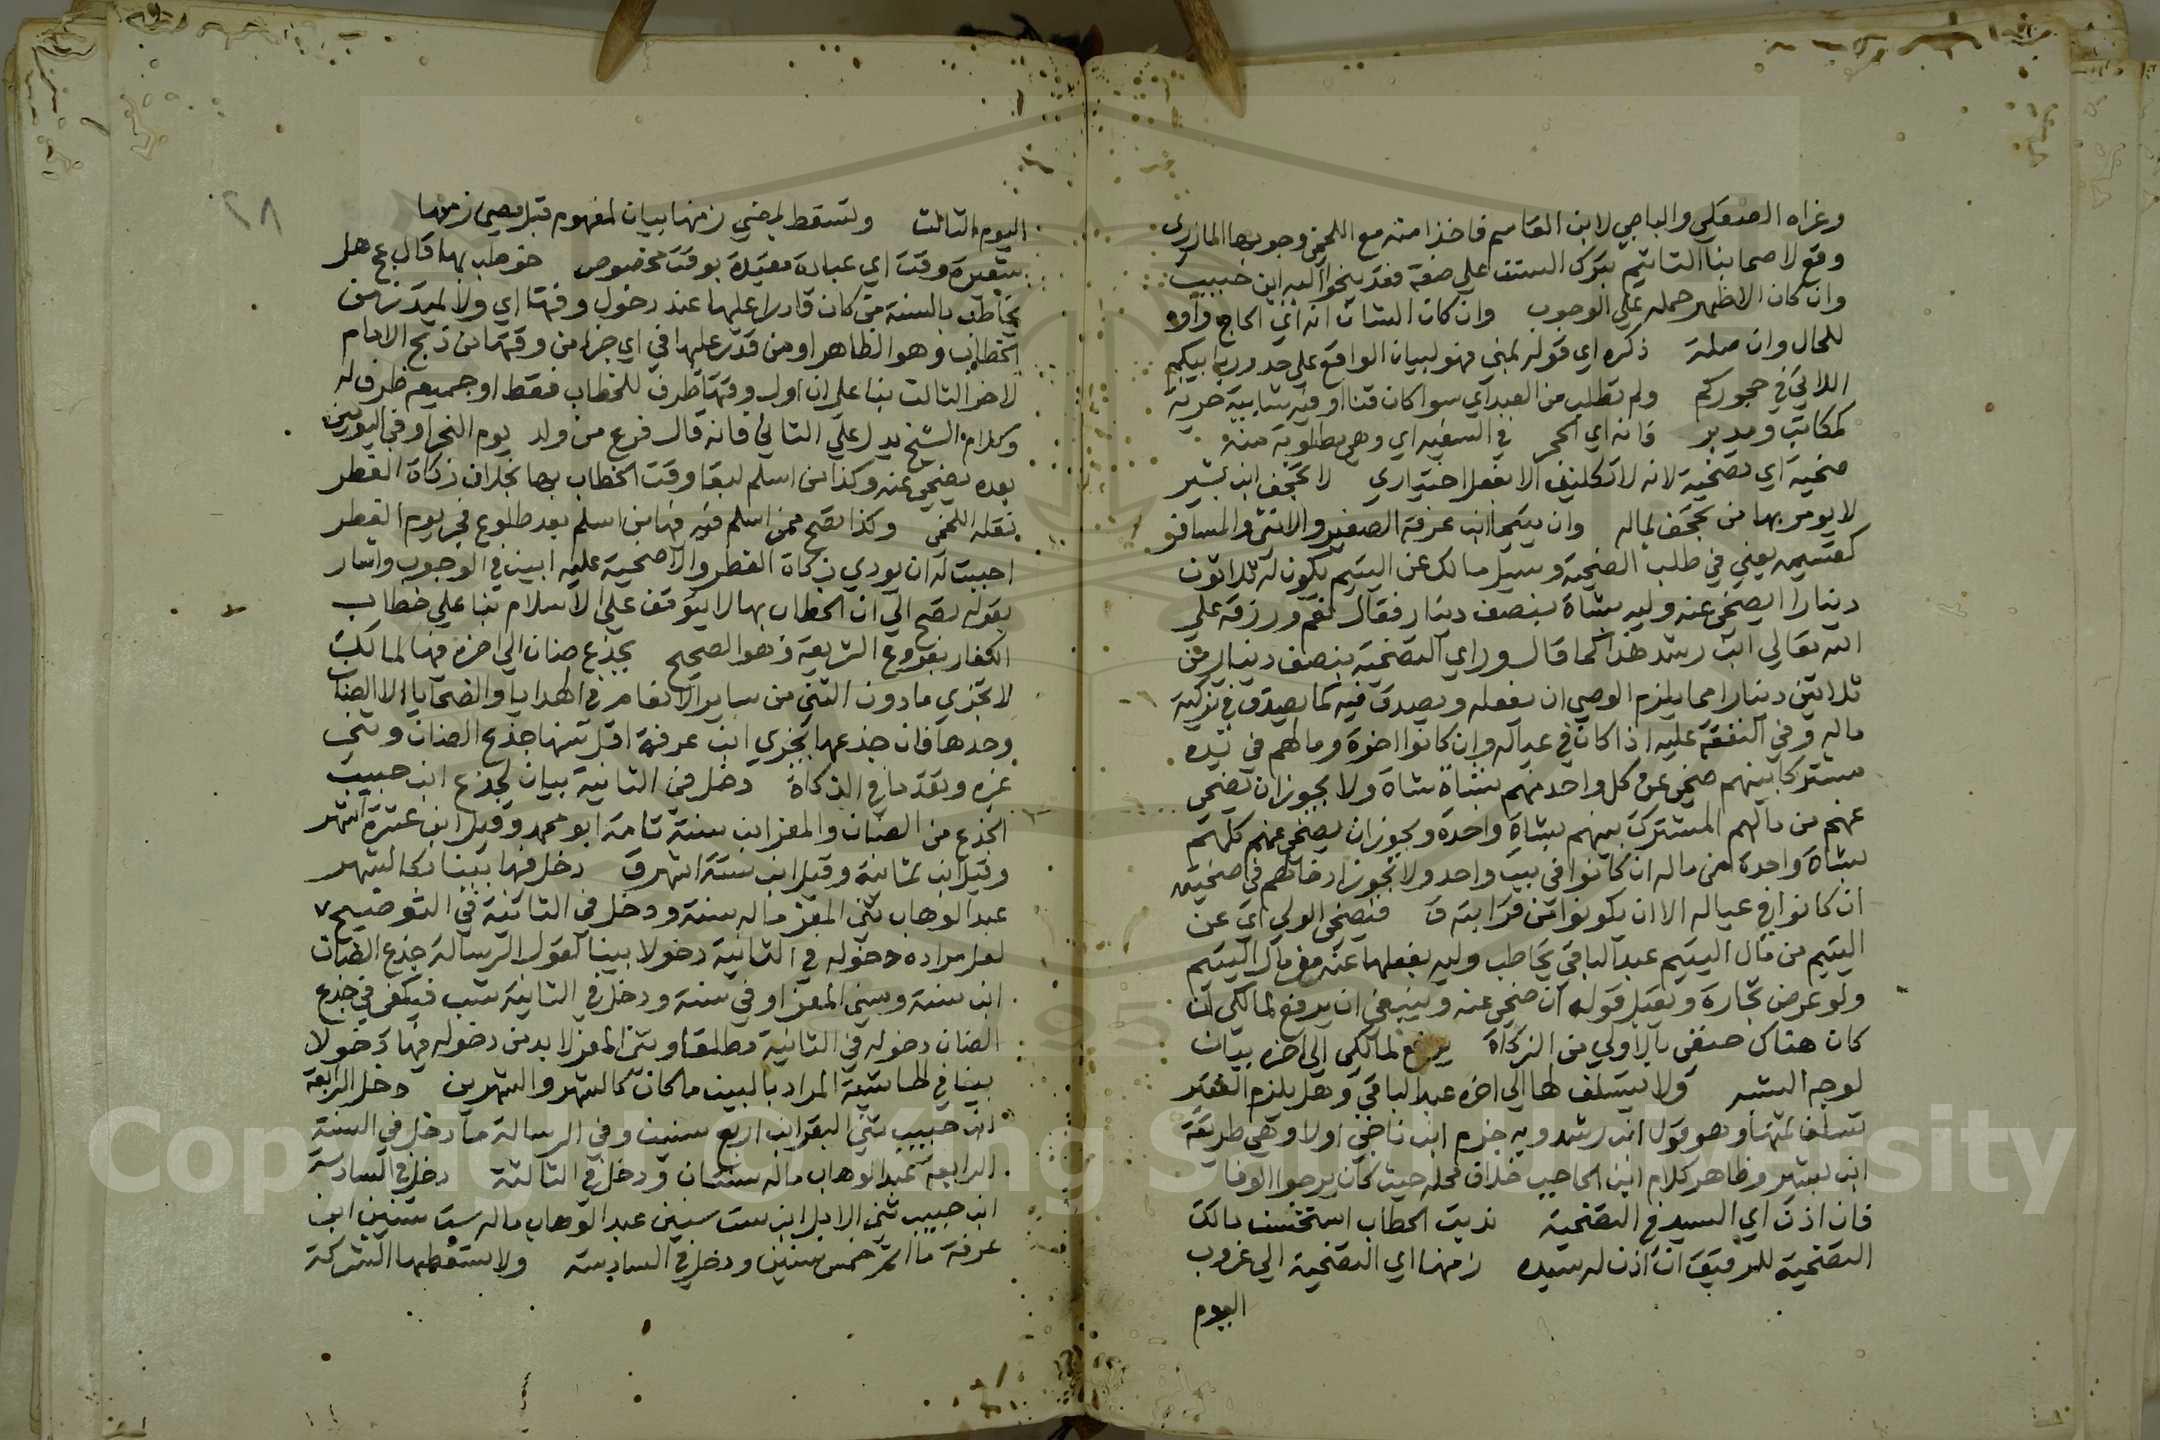 وعزاه الصقلي والباجي لابن القاسم فاخذا منه مع اللخمي وجوبها المازري
وقع لاصحابنا التاثيم بترك السنن على صفة فقد نحوا اليه ابن حبيب
وان كان الاظهر حمله على الوجوب وان كان الشان انه اي الحاج
للحال وان صلية ذكره اي قوله لمني فهو لبيان الواقع على حد وربايبكم
اللاتي في حجوركم ولم تطلب من العبد اي سوا كان قنا او فيه شايبة حرية
كمكاتب ومدبر فانه اي الحجر في السفيه اي وهي مطلوبة منه
ضحية اي تضحية لانه لا تكليف الا بفعل اختياري لا تجحف ابن بشير
لا يومر بها من تجحف بماله وان يتيما ابن عرفة الصغير والانثى والمسافر
كقسيمه يعني في طلب الضحية وسيل مالك عن اليتيم تكون له ثلاثون
دينارا ايضحي عنه وليه بشاة بنصف دينار فقال نعم ورزقه على
الله تعالى ابن رشد هذا كما قال وراي التضحية بنصف دينار من
ثلاثين دينارا مما يلزم الوصي ان يفعله ويصدق فيه كما يصدق في تزكية
ماله وفي النفقة عليه اذا كان في عياله وان كانوا اخوة ومالهم في يده
مشتركا بينهم ضحى عن كل واحد منهم بشاة شاة ولا يجوز ان يضحي
عنهم من مالهم المشترك بينهم بشاة واحدة ويجوز ان يضحي عنهم كلهم
بشاة واحدة من ماله ان كانوا في بيت واحد ولا يجوز ادخالهم في اضحيته
ان كانوا في عياله الا ان يكونوا من قرابته ق فيضحي الولي اي عن
اليتيم من مال اليتيم عبد الباقي يخاطب وليه بفعلها عنه من مال اليتيم
ولو عرض تجارة ويقبل قوله ان ضحى عنه وينبغي ان يرفع لمالكي ان
كان هناك حنفي بالاولى من الزكاة يرفع لمالكي الى اخره بيان
لوجه الشبه ولا يتسلف لها الى اخره عبد الباقي وهل يلزم الفقير
تسلف ثمنها وهو قول ابن رشد وبه جزم ابن ناجي اولا وهي طريقة
ابن بشير وظاهر كلام ابن الحاجب خلاف محله حيث كان يرجوا الوفا
فان اذن اي السيد في التضحية ندبت الخطاب استحسن مالك
التضحية للرقيق ان اذن له سيده زمنها اي التضحية الى غروب
اليوم
اليوم الثالث وتسقط لمضي زمنها بيان لمفهوم قبل مضي زمنها
وقت اي عبادة مقيدة بوقت مخصوص خوطب بها قال عج هل
يخاطب بالسنة من كان قادرا عليها عند دخول وقتها اي ولا لميد زمن
الخطاب وهو الظاهر او من قدر عليها في اي جزء من وقتها من ذبح الامام
لاخر الثالث بنا على ان اول وقتها ظرف للخطاب فقط او جميعه ظرف له
وكلام الشيخ يدل على الثاني فانه قال فرع من ولد يوم النحر او في اليومين
بعده يضحي عنه وكذا من اسلم لبقا وقت الخطاب بها بخلاف زكاة الفطر
نقله اللخمي وكذا تصح ممن اسلم فيه فيها من اسلم بعد طلوع فجر يوم الفطر
احببت له ان يودي زكاة الفطر والاضحية عليه ابين في الوجوب واشار
بقوله تصح الى ان الخطاب بها لا يتوقف على الاسلام بنا على خطاب
الكفار بفروع الشريعة وهو الصحيح بجذع ضان الى اخره فيها لمالك
لا تجزي مادون الثني من ساير الانعام في الهدايا والضحايا الا الضان
وحدها فان جذعها يجزي ابن عرفة اقل سنها جذع الضان وثني
غيره وتقدما في الزكاة دخل في الثانية بيان لجذع ابن حبيب
الجذع من الضان والمعز ابن سنة تامة ابو محمد وقيل ابن عشرة اشهر
وقيل ابن ثمانية وقيل ابن ستة اشهر ق دخل فيها بينا كالشهر
عبد الوهاب ثني المعز ماله سنة ودخل في الثانية في التوضيح
لعل مراده دخوله في الثانية دخولا بينا لقول الرسالة جذع الضان
ابن سنة وثني المعز اوفى سنة ودخل في الثانية شب فيكفي في جذع
الضان دخوله في الثانية مطلقا وثني المعز لا بد من دخوله فيها دخولا
بينا في الحاشية المراد بالبين ما كان كالشهر والشهرين دخل الرابعة
ابن حبيب ثني البقر ابن اربع سنين وفي الرسالة ما دخل في السنة
الرابعة عبد الوهاب ماله سنتان ودخل في الثالثة دخل في السادسة
ابن حبيب ثني الابل ابن ست سنين عبد الوهاب ماله ست سنين ابن
عرفة ما اتم خمس سنين ودخل في السادسة ولا تسقطها الشركة
Copyright © King Saud University